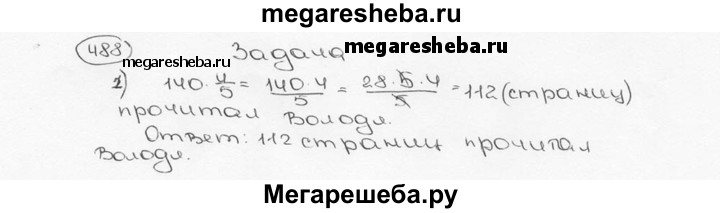 megaresheba.ru
488) Задача
megaresheba.ru
megaresheba.ru
1) 140·4/5 = 140·4/5 = 28·5·4/5 = 112 (страниц)
прочитал Володя.
Ответ: 112 страниц прочитал
Володя.
Мегарешеба.ру